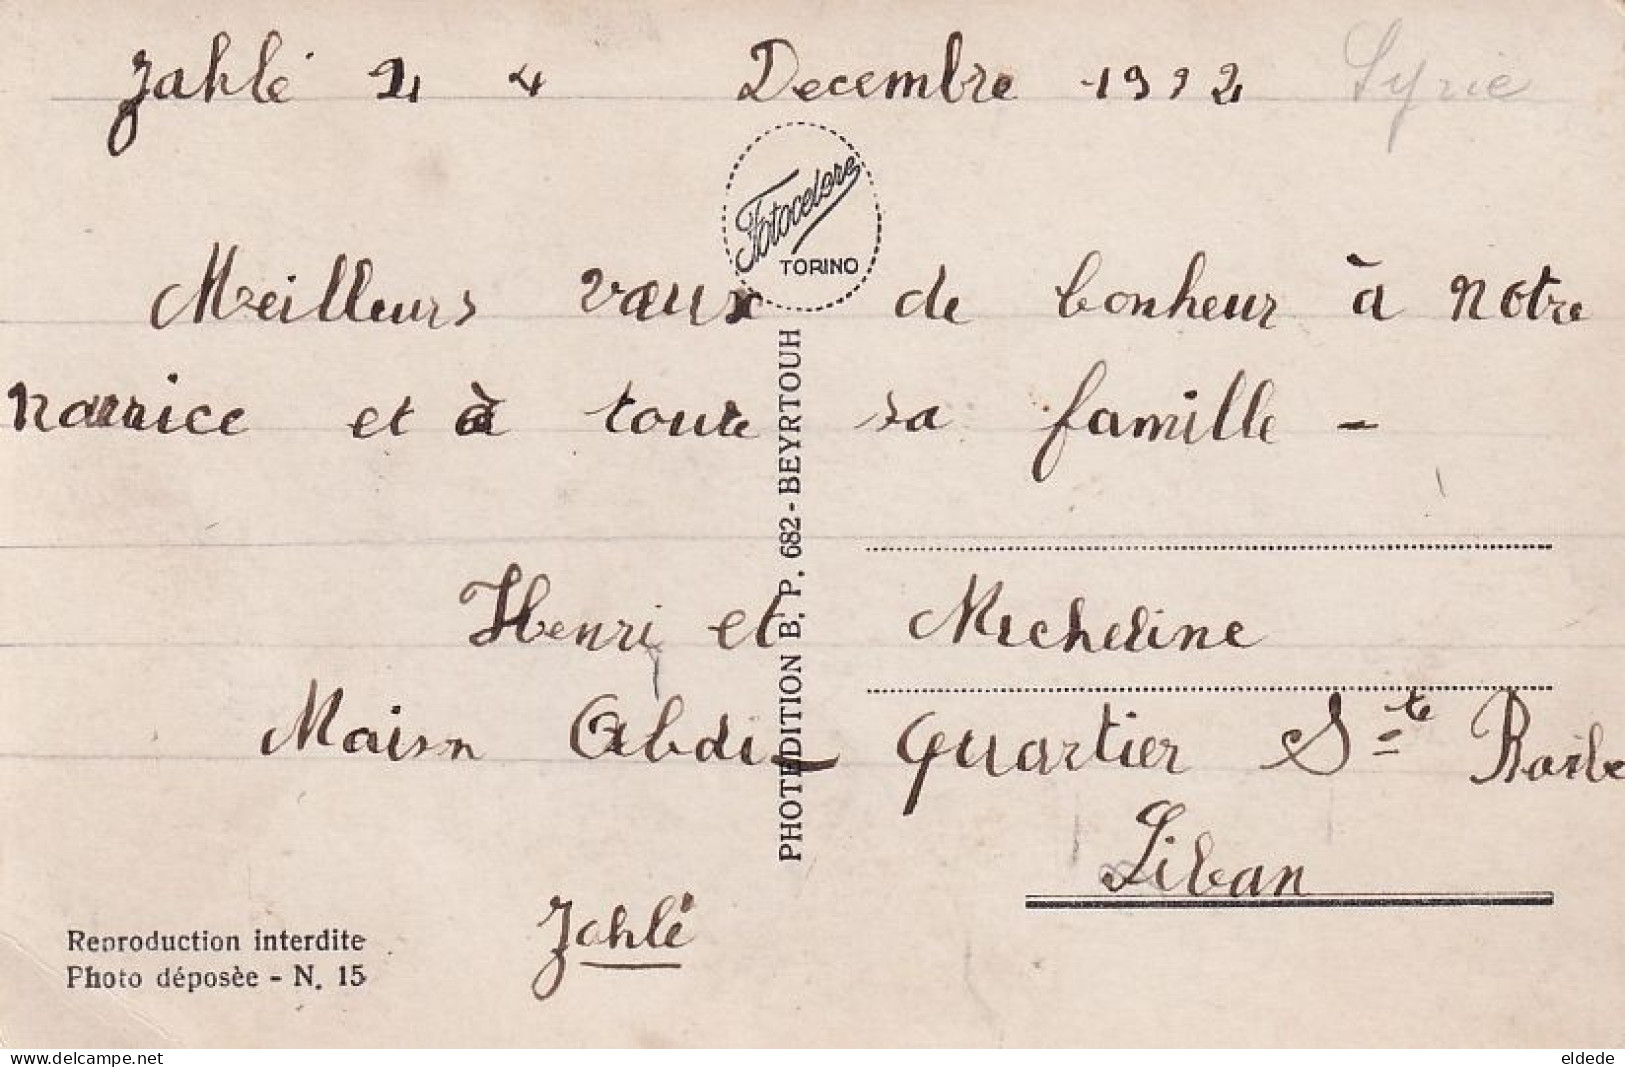 Zahlé 24 Decembre 1932
Syrie
Fotocelere
TORINO
Meilleurs vœux de bonheur à Notre
Narrice et à toute sa famille -
Henri et Micheline
Maison Abdi - quartier Ste Barbe
Liban
Zahlé
PHOTEDITION B. P. 682 - BEYRTOUH
Reproduction interdite
Photo déposèe - N. 15
www.delcampe.net
eldede